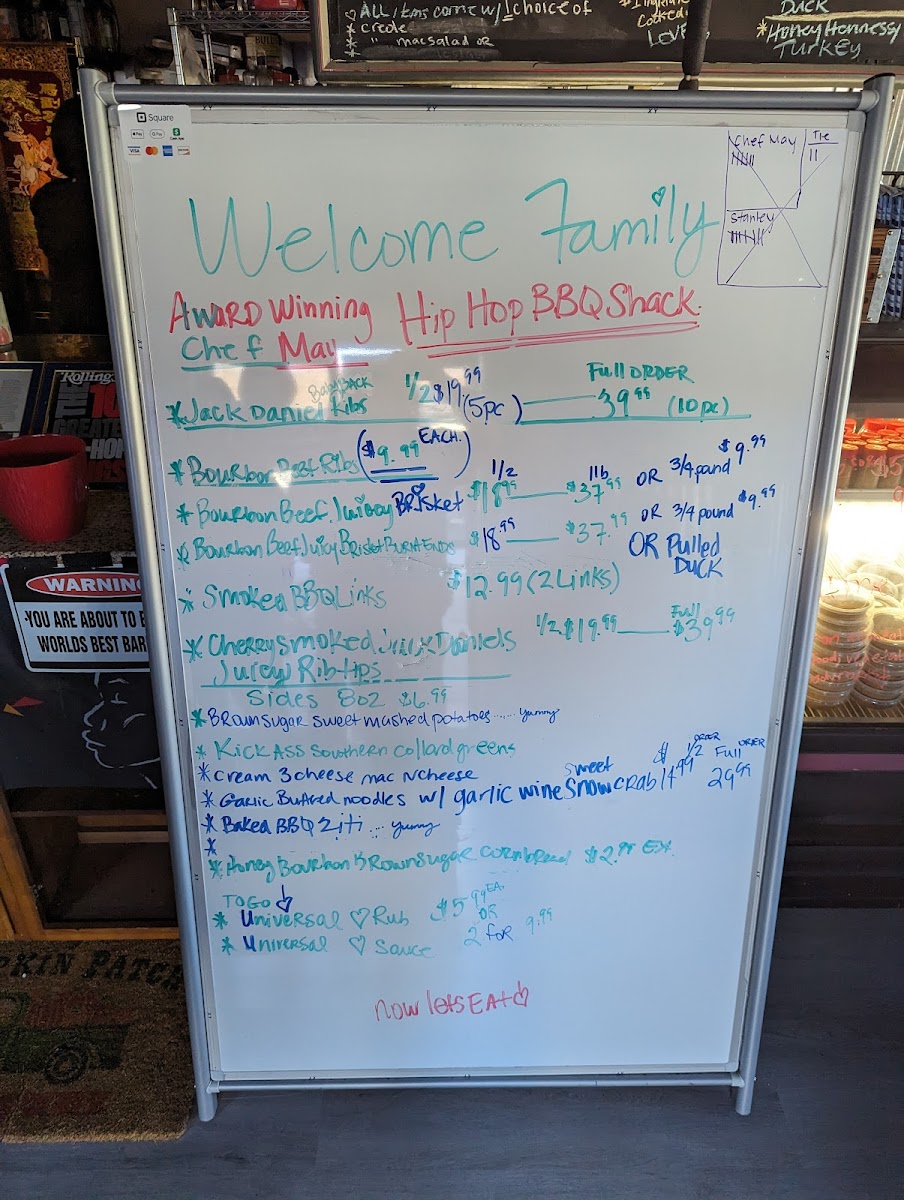 ALL items come w/ 1 choice of
* creole
* " macsalad or
Cooked
LOVE
DUCK
* Honey Hennessy
TURKEY
Square
Pay
G Pay
Cash App
VISA
Chef May
Tre
Stanley
Welcome Family
AWARD Winning Hip Hop BBQ Shack.
Chef May
* Jack Daniel BabyBACK Ribs 1/2 $19.99 (5pc) FULL ORDER 39.99 (10pc)
* Bourbon Beef Ribs ($9.99 EACH.)
* Bourbon Beef Juicey BRisket 1/2 $18.99 1lb $37.99 OR 3/4 pound $9.99
* Bourbon Beef Juicy Brisket Burnt ENDS $18.99 $37.99 OR 3/4 pound $9.99
OR Pulled
DUCK
* Smoked BBQ Links $12.99 (2 Links)
* Cherrysmoked Jack Daniels 1/2 $19.99 Full $39.99
Juicey Rib-tips
Sides 8oz $6.99
* Brown sugar sweet mashed potatoes ...... yummy
* Kick Ass southern collard greens
* Cream 3 cheese mac Ncheese
* Garlic Buttered noodles w/ garlic wine sweet snowcrab $14.99 1/2 ORDER Full ORDER 29.99
* Baked BBQ Ziti ... yummy
*
* Honey Bourbon Brownsugar cornbread $2.99 EX.
TOGO
* Universal ♡ Rub $5.99 EA.
OR
* Universal ♡ Sauce 2 for 9.99
now lets EAT
Rolling
THE
10
GREATEST
WARNING
YOU ARE ABOUT TO E
WORLDS BEST BAR
PKIN PATCH